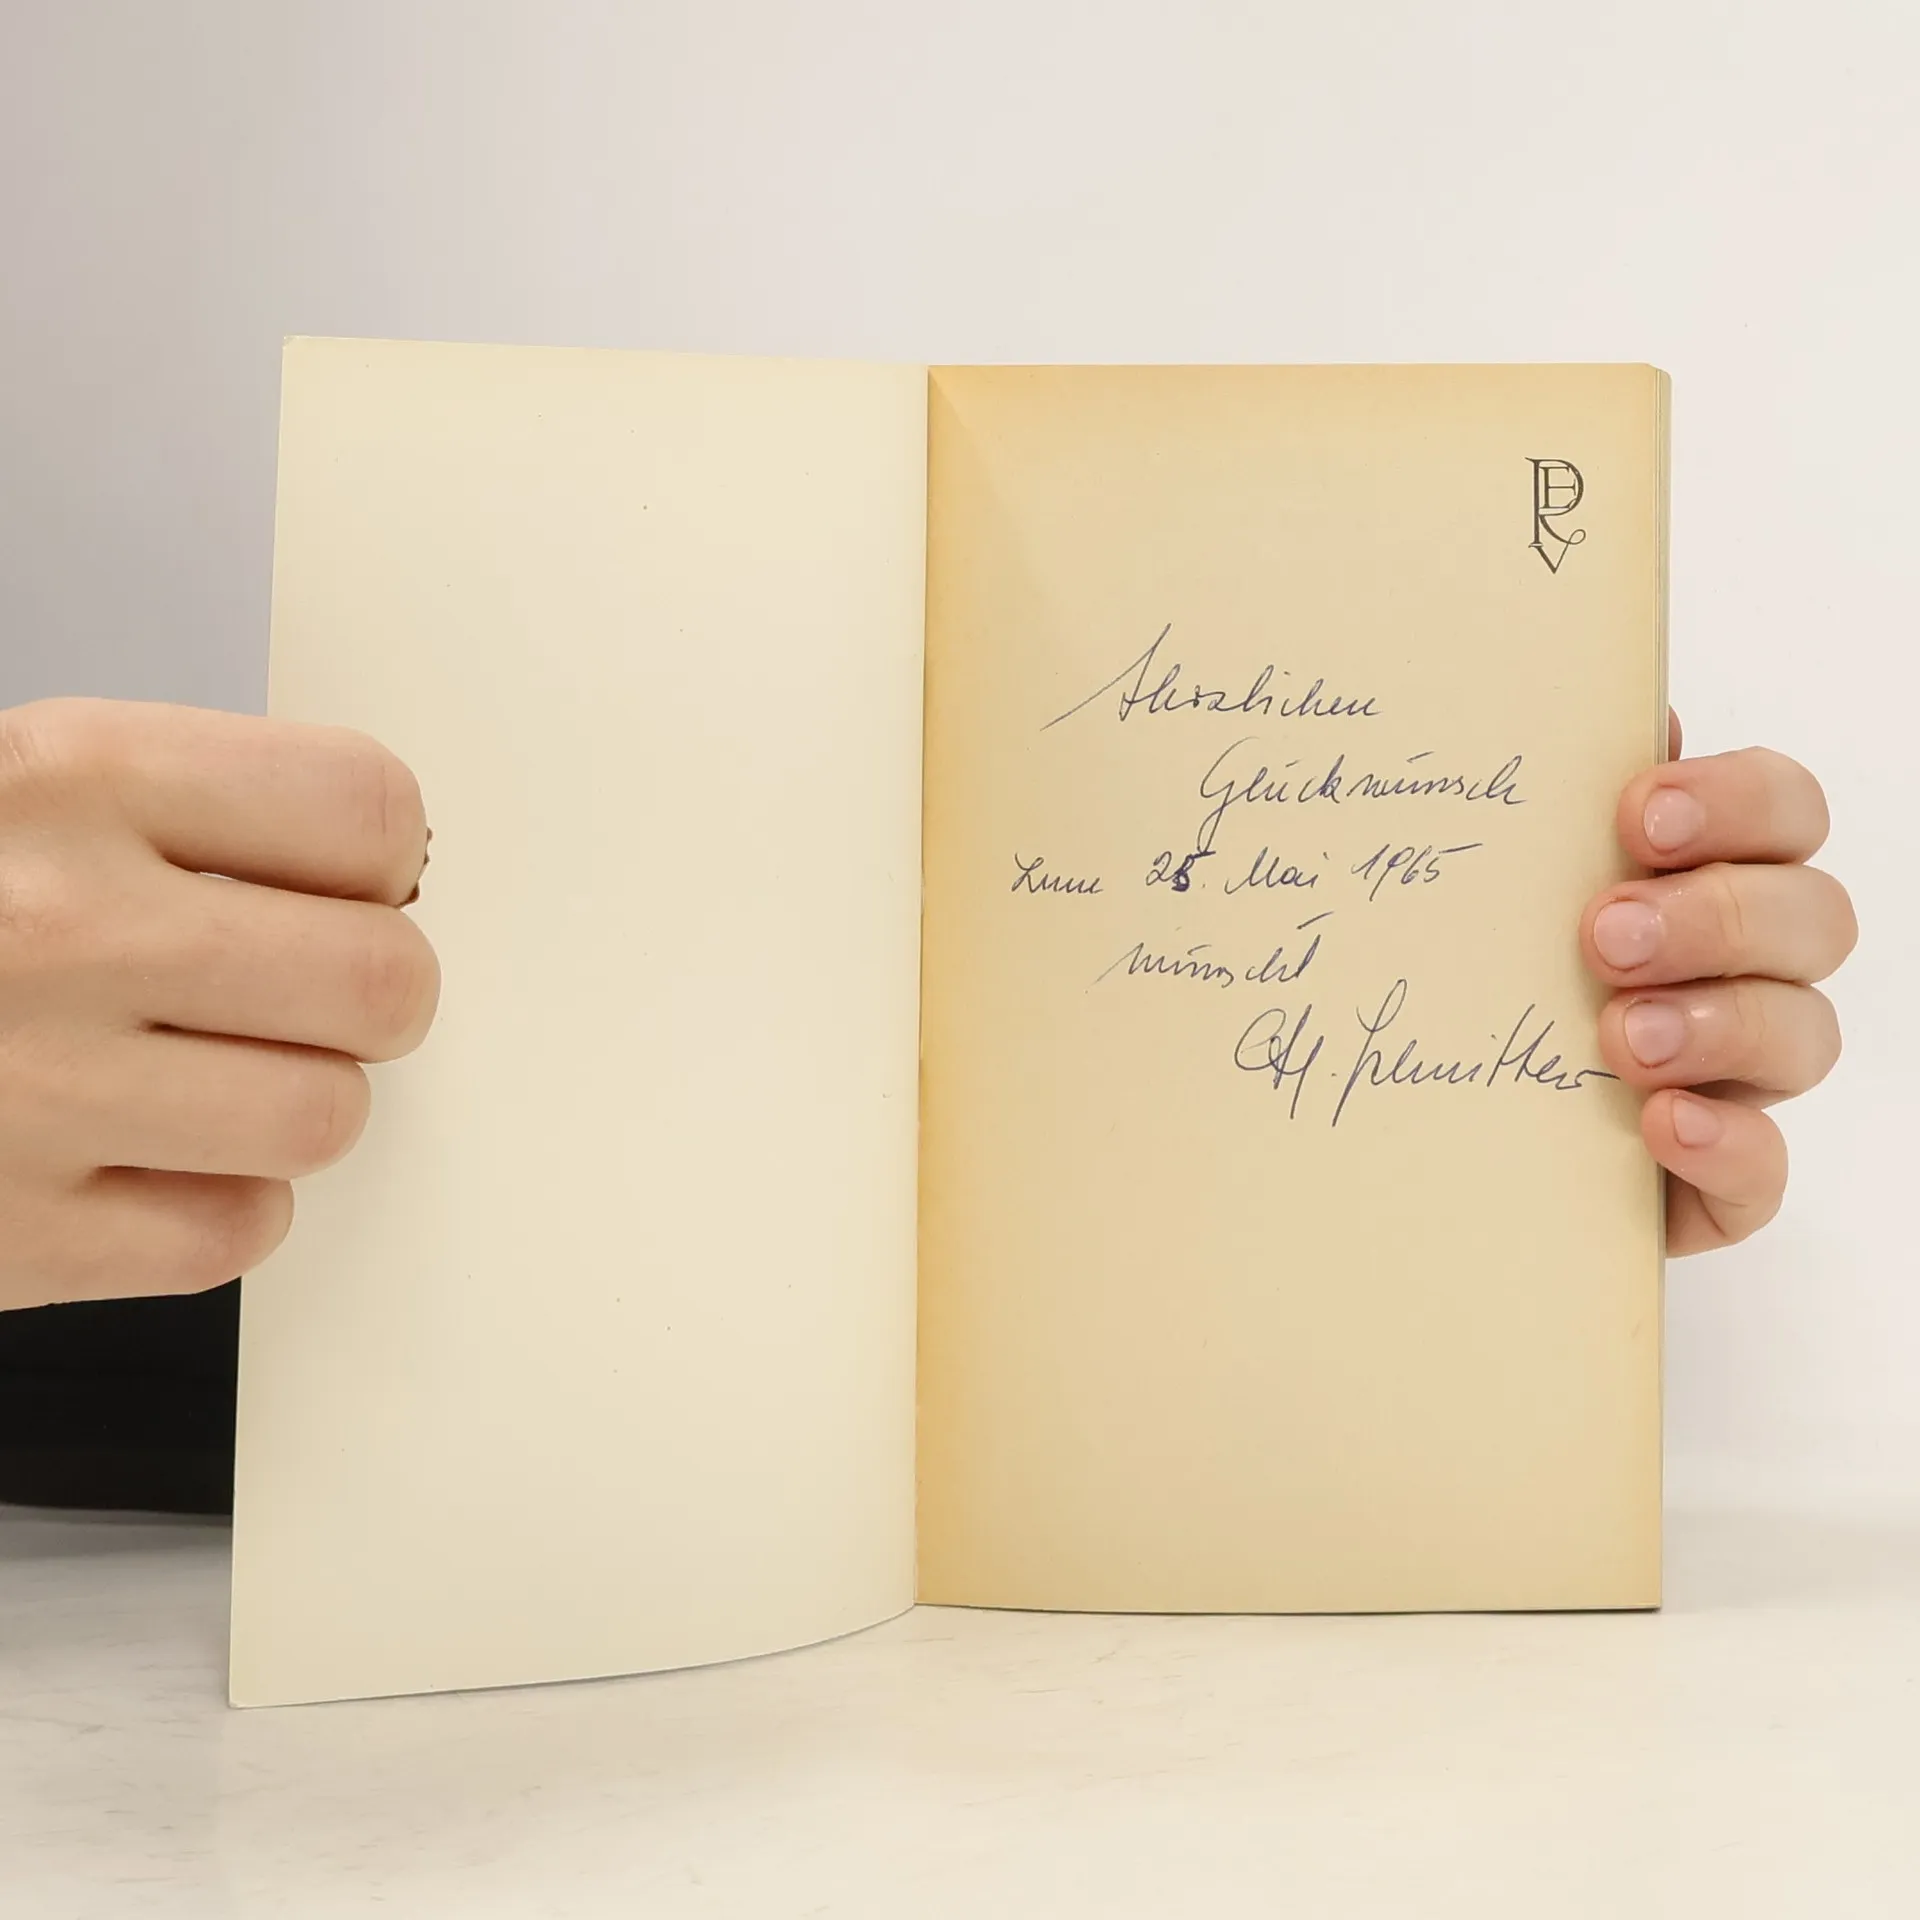 PERV
Herzlichen
Glückwünsch
zum 25. Mai 1965
wünscht
Schmitter